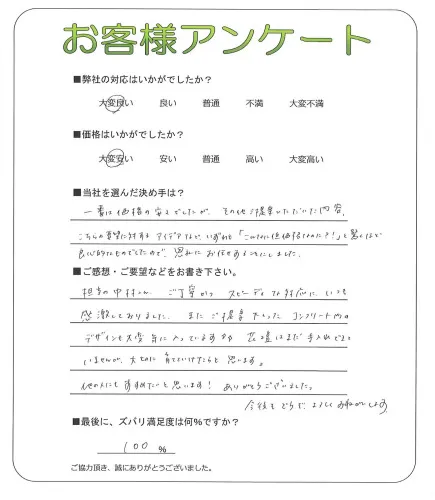 お客様アンケート
■弊社の対応はいかがでしたか？
大変良い 良い 普通 不満 大変不満
■価格はいかがでしたか？
大変安い 安い 普通 高い 大変高い
■当社を選んだ決め手は？
一番は価格の安さでしたが、その他ご提案いただいた内容、
こちらの要望に対するアイデアなど、いずれも「こんなに低価格なのに？！」と驚くほど
良心的なものでしたので、思わずお任せすることにしました。
■ご感想・ご要望などをお書き下さい。
担当の中村さん、ご丁寧かつスピーディな対応に、いつも
感激しておりました。またご提案下さったコンクリートの
デザインも大変気に入っていますが 花壇はまだ手入れできて
いませんが、大切に育てていけたらと思います。
他の人にもすすめたいと思います！ ありがとうございました。
今後とも よろしくお願いします
■最後に、ズバリ満足度は何%ですか？
100 %
ご協力頂き、誠にありがとうございました。